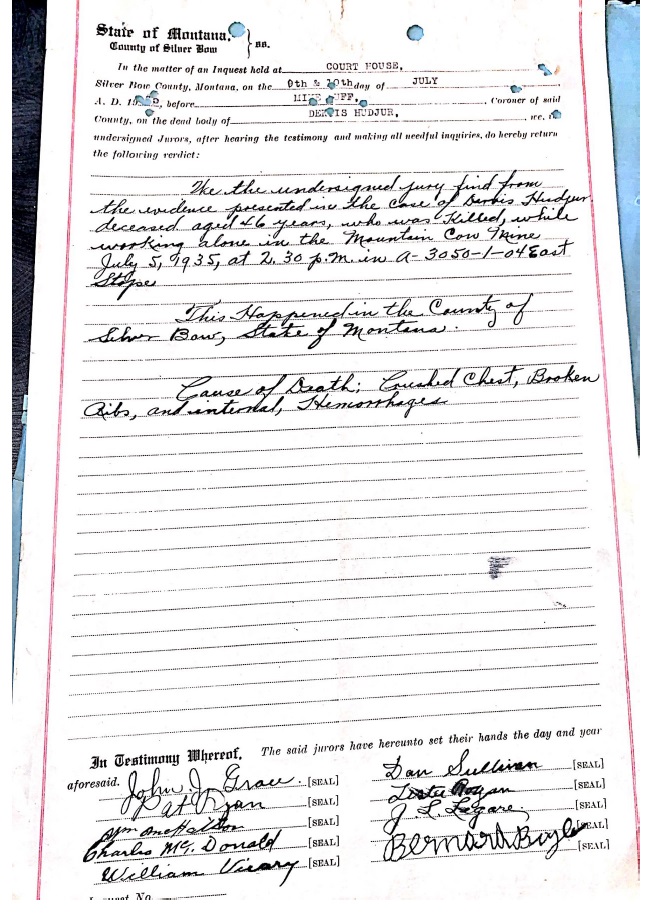 State of Montana,
County of Silver Bow } ss.
In the matter of an Inquest held at COURT HOUSE,
Silver Bow County, Montana, on the 9th & 10th day of JULY
A. D. 19, before , Coroner of said
County, on the dead body of DENNIS HUDJUR, , we, the
undersigned Jurors, after hearing the testimony and making all needful inquiries, do hereby return
the following verdict:
We the undersigned jury find from
the evidence presented in the case of Hudjur
deceased, aged 46 years, who was Killed, while
working alone in the Mountain Con Mine
July 5, 1935, at 2.30 p.m. in A-3050-1-04 East
Stope
This Happened in the County of
Silver Bow, State of Montana.
Cause of Death; Crushed Chest, Broken
Ribs, and internal, Hemorrhages.
In Testimony Whereof, The said jurors have hereunto set their hands the day and year
aforesaid. John J. Grace. [SEAL]
Pat Ryan [SEAL]
[SEAL]
Charles Mc. Donald [SEAL]
William Vicary [SEAL]
Dan Sullivan [SEAL]
[SEAL]
J. L. Legare. [SEAL]
Bernard Boyle [SEAL]
[SEAL]
Inquest No.